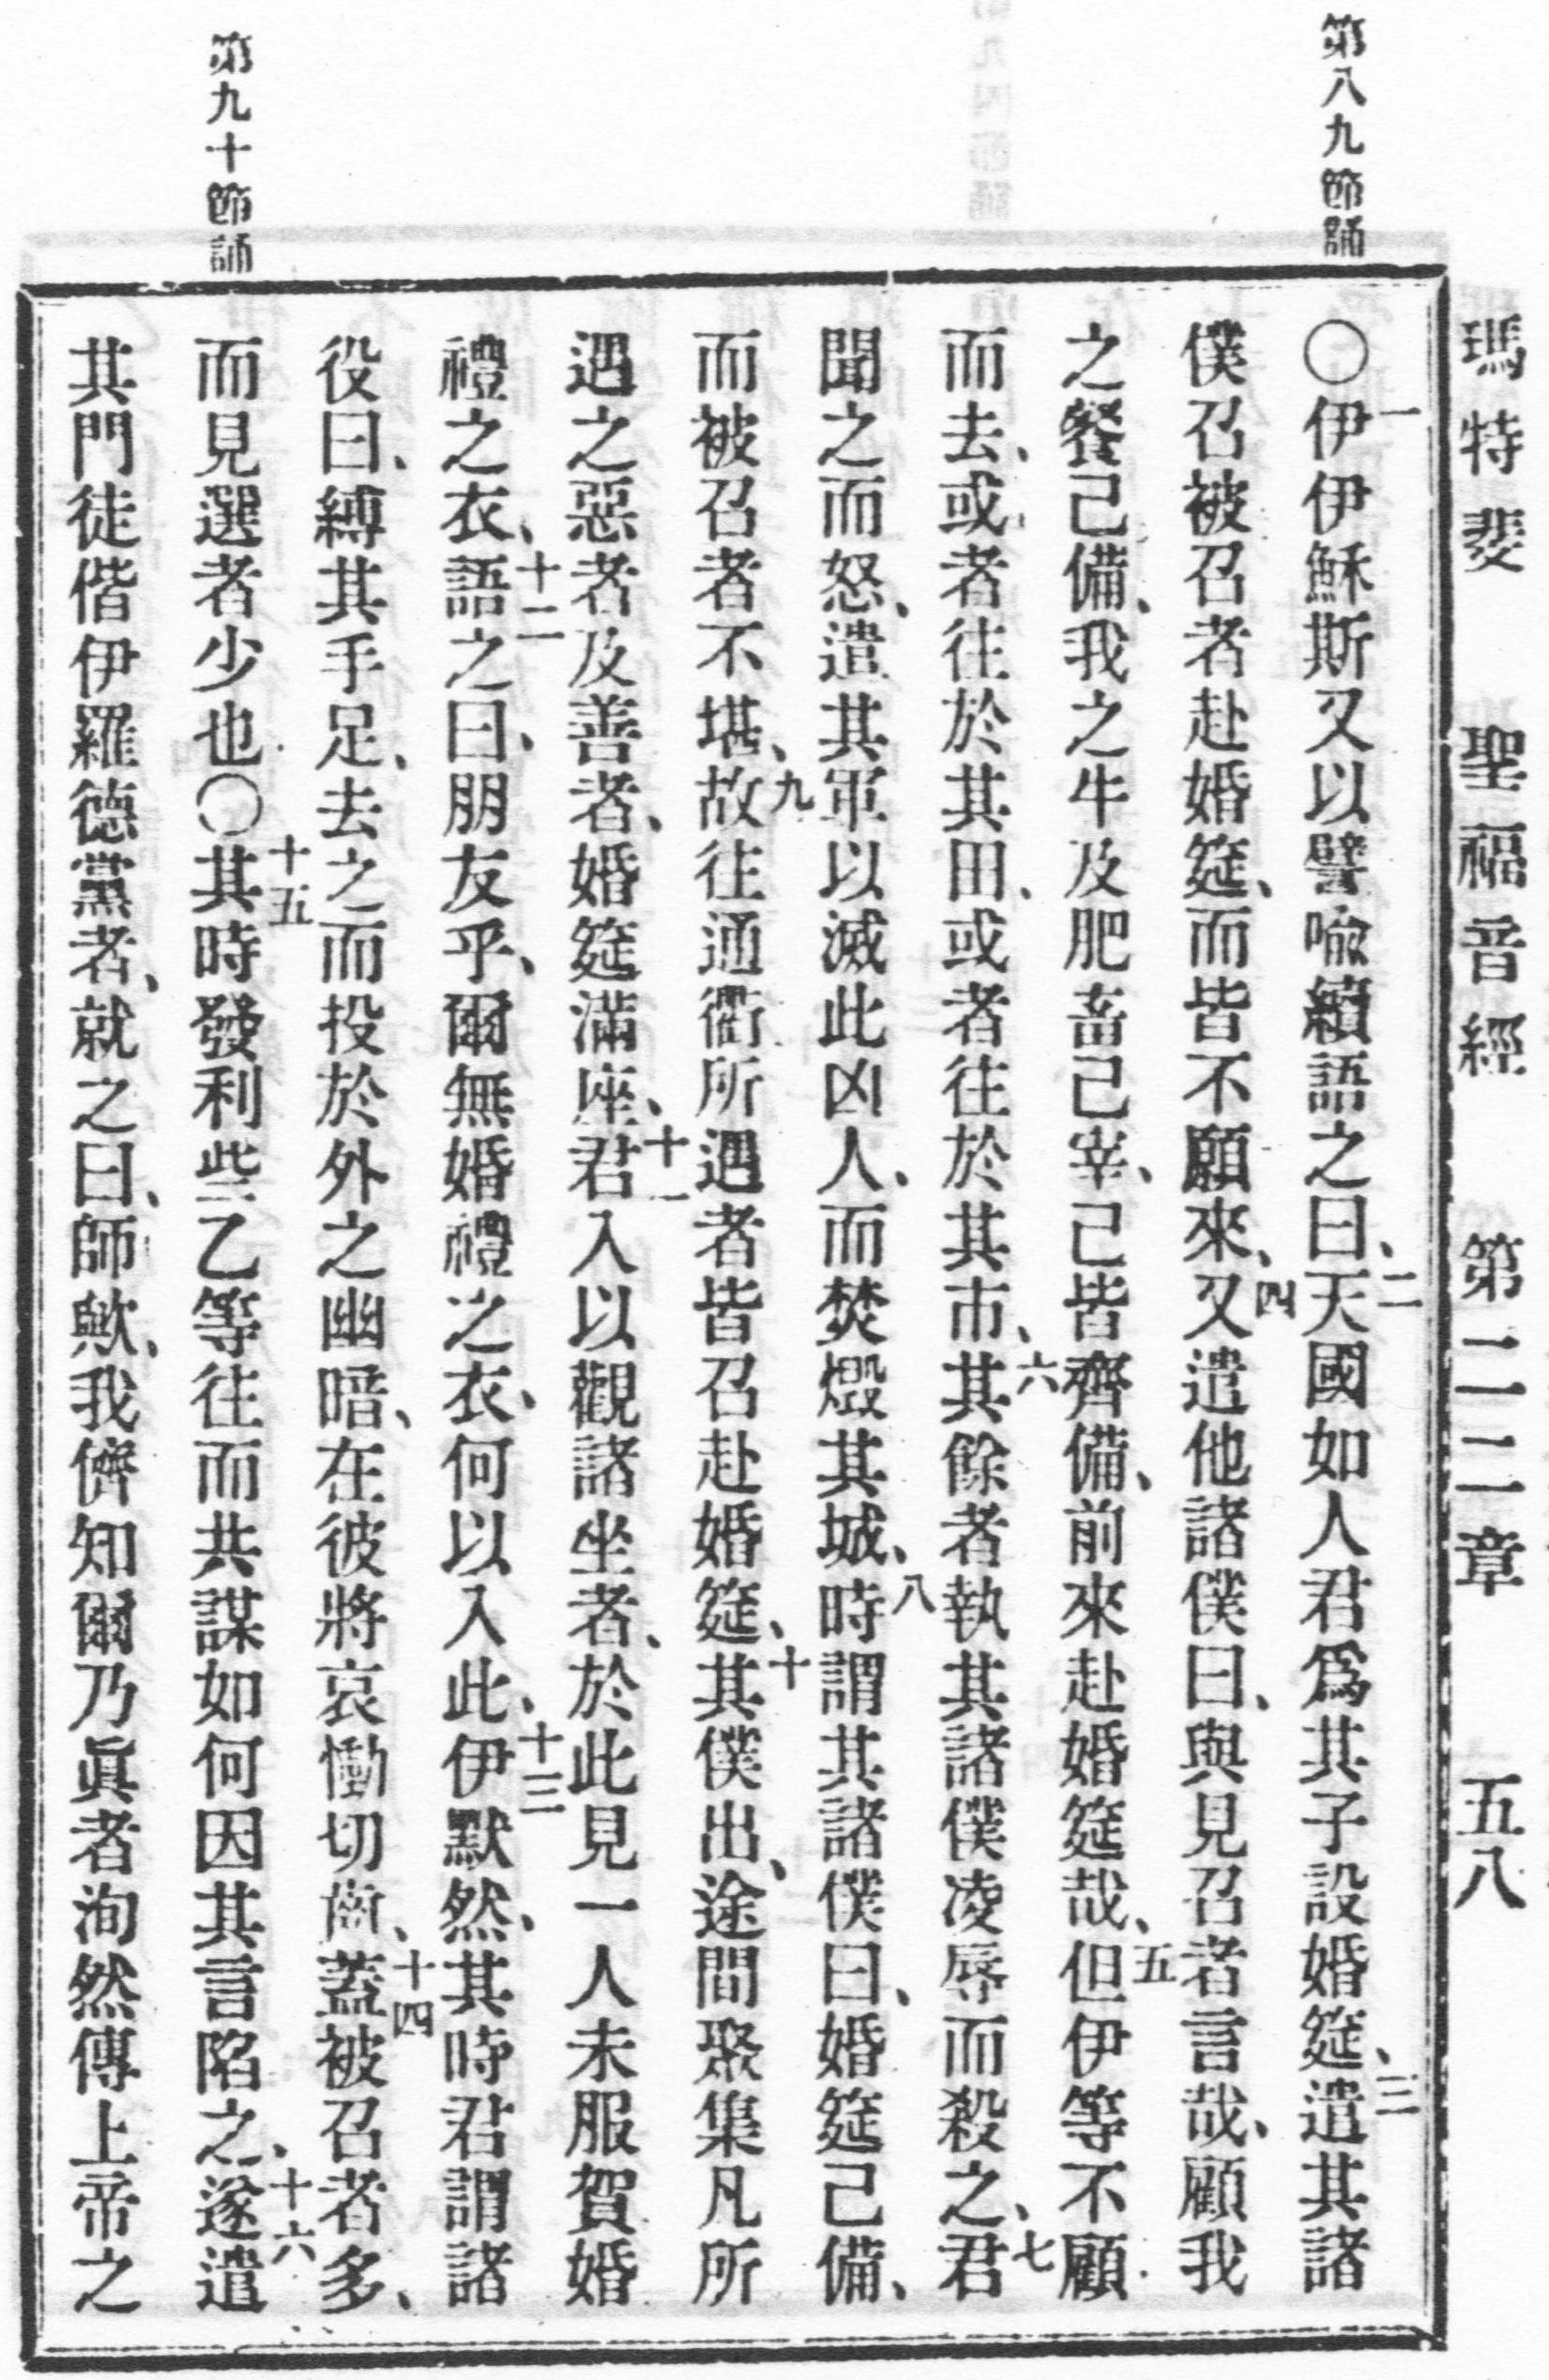 瑪特斐 聖福音經 第二二章 五八
第八九節誦
〇一伊伊穌斯又以譬喻續語之曰、二天國如人君爲其子設婚筵、三遣其諸
僕召被召者赴婚筵、而皆不願來、四又遣他諸僕曰、與見召者言哉、顧我
之餐己備、我之牛及肥畜己宰、己皆齊備、前來赴婚筵哉、五但伊等不顧
而去、或者往於其田、或者往於其市、六其餘者執其諸僕凌辱而殺之、七君
聞之而怒、遣其軍以滅此凶人、而焚燬其城、八時謂其諸僕曰、婚筵己備、
而被召者不堪、九故往通衢所遇者皆召赴婚筵、十其僕出、途間聚集凡所
遇之惡者及善者、婚筵滿座、十一君入以觀諸坐者、於此見一人未服賀婚
禮之衣、十二語之曰、朋友乎、爾無婚禮之衣、何以入此、十三伊默然、其時君謂諸
役曰、縛其手足、去之而投於外之幽暗、在彼將哀慟切齒、十四蓋被召者多、
第九十節誦
而見選者少也〇十五其時發利些乙等往而共謀如何因其言陷之、十六遂遣
其門徒偕伊羅德黨者、就之曰、師歟、我儕知爾乃眞者洵然傳上帝之